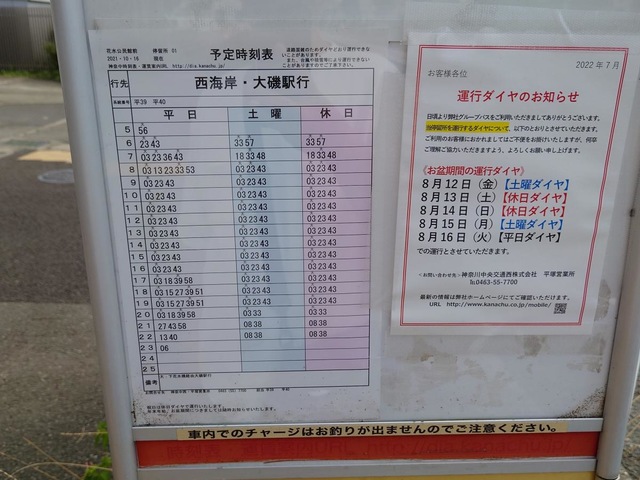 花水公民館前 停留所 01
2021-10-16 現在
予定時刻表
行先 西海岸・大磯駅行
系統番号 平39 平40
平日 土曜 休日
5 56
6 23 43 33 57 33 57
7 03 23 36 43 18 33 48 18 33 48
8 03 13 23 33 53 03 23 43 03 23 43
9 03 23 43 03 23 43 03 23 43
10 03 23 43 03 23 43 03 23 43
11 03 23 43 03 23 43 03 23 43
12 03 23 43 03 23 43 03 23 43
13 03 23 43 03 23 43 03 23 43
14 03 23 43 03 23 43 03 23 43
15 03 23 43 03 23 43 03 23 43
16 03 23 43 03 23 43 03 23 43
17 03 18 39 58 03 23 43 03 23 43
18 03 15 27 39 51 03 23 43 03 23 43
19 03 15 27 39 51 03 23 43 03 23 43
20 03 18 39 58 03 33 03 33
21 27 43 58 08 38 08 38
22 13 40 08 38 08 38
23 06
24
25
備考
2022年7月
お客様各位
運行ダイヤのお知らせ
日頃より弊社グループバスをご利用いただきましてありがとうございます。
当停留所を運行するダイヤについて、以下のとおりとさせていただきます。
ご利用のお客様におかれましてはご不便をお掛けいたしますが、何卒
ご理解ご協力いただきますよう、よろしくお願い申し上げます。
《お盆期間の運行ダイヤ》
8月12日（金）【土曜ダイヤ】
8月13日（土）【休日ダイヤ】
8月14日（日）【休日ダイヤ】
8月15日（月）【土曜ダイヤ】
8月16日（火）【平日ダイヤ】
での運行とさせていただきます。
＜お問い合わせ先＞神奈川中央交通西株式会社 平塚営業所
℡0463-55-7700
最新の情報は弊社ホームページにてご確認いただけます。
URL http://www.kanachu.co.jp/mobile/
車内でのチャージはお釣りが出ませんのでご注意ください。